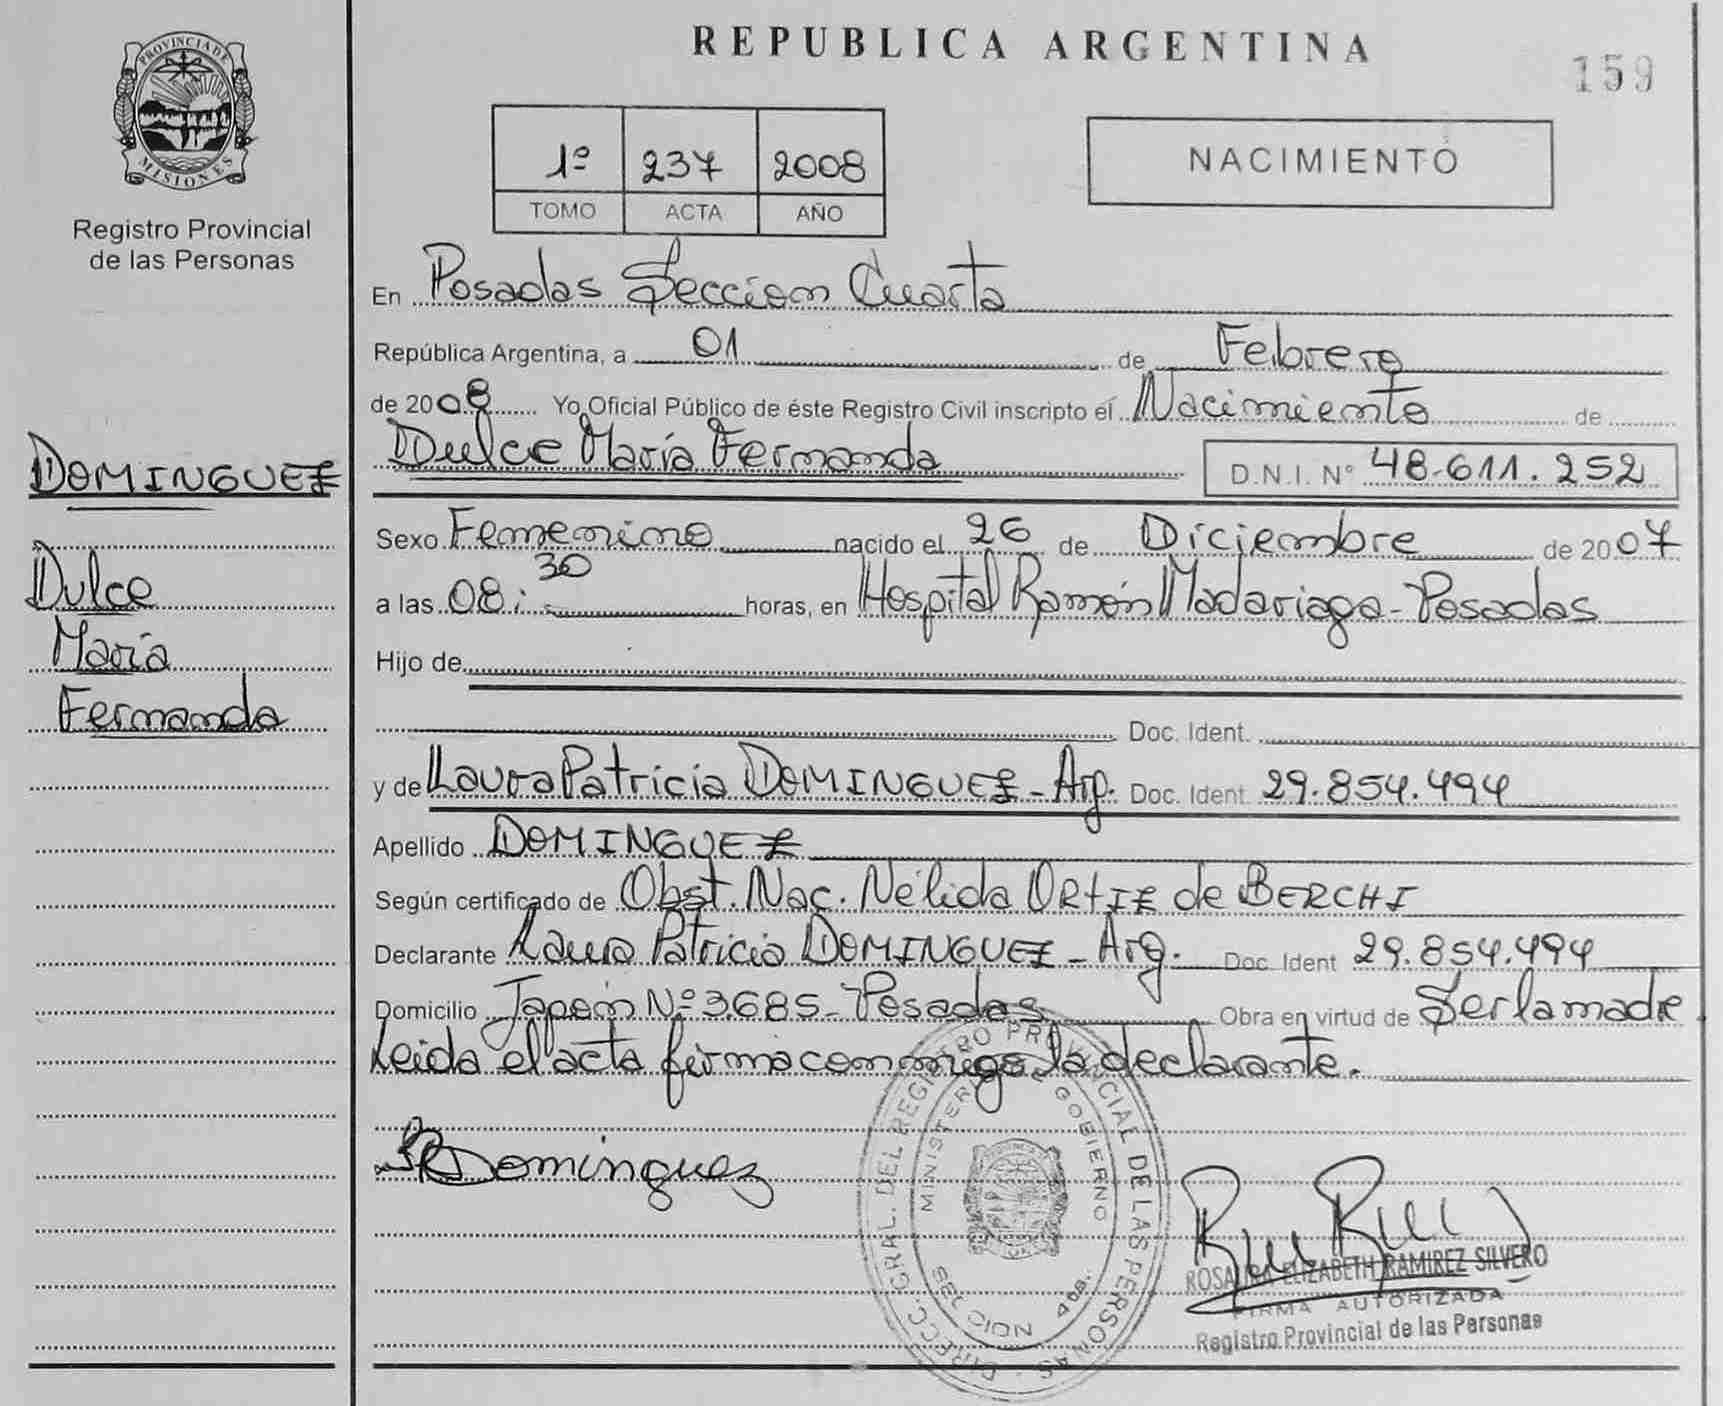 REPUBLICA ARGENTINA
159
PROVINCIA DE
MISIONES
Registro Provincial
de las Personas
1º 237 2008
TOMO ACTA AÑO
NACIMIENTO
En Posadas Sección Cuarta
República Argentina, a 01 de Febrero
de 2008 Yo Oficial Público de éste Registro Civil inscripto el Nacimiento de
Dulce María Fernanda D.N.I. Nº 48.611.252
DOMINGUEZ
Dulce
María
Fernanda
Sexo Femenino nacido el 26 de Diciembre de 2007
a las 08:30 horas, en Hospital Ramón Madariaga - Posadas
Hijo de
Doc. Ident.
y de Laura Patricia DOMINGUEZ - Arg. Doc. Ident 29.854.494
Apellido DOMINGUEZ
Según certificado de Obst. Nac. Nélida ORTIZ de BERCHI
Declarante Laura Patricia DOMINGUEZ - Arg. Doc. Ident 29.854.494
Domicilio Japón Nº 3685 - Posadas Obra en virtud de Ser la madre
Leida el acta firma conmigo la declarante.
Dominguez
DIRECC. GRAL. DEL REGISTRO PROVINCIAL DE LAS PERSONAS
MINISTERIO DE GOBIERNO
ROSALINA ELIZABETH RAMIREZ SILVERO
FIRMA AUTORIZADA
Registro Provincial de las Personas